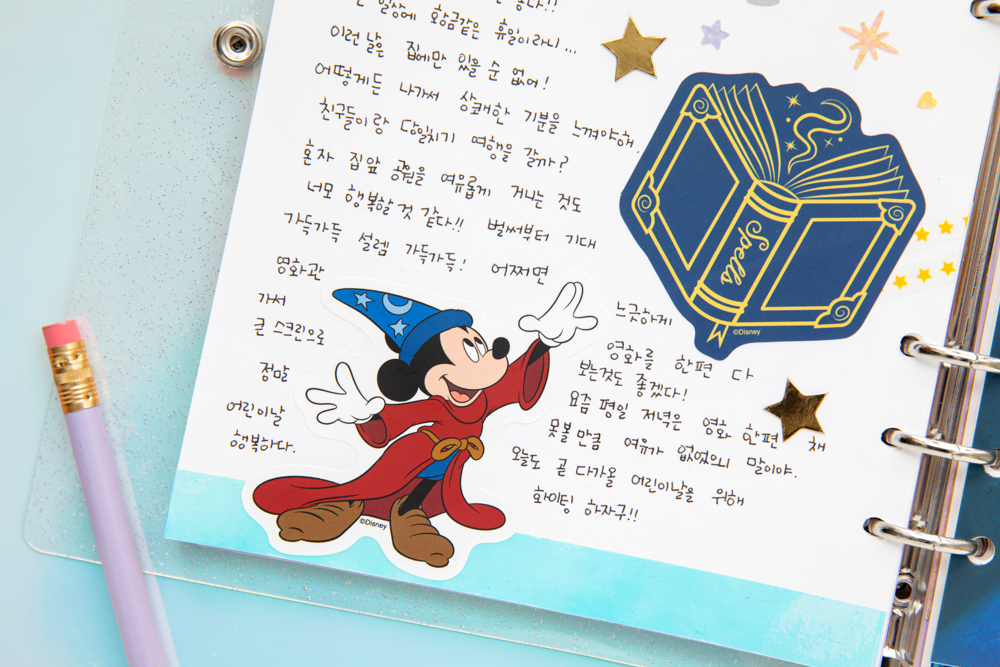 일상에 황금같은 휴일이라니...
이런 날은 집에만 있을 수 없어!
어떻게든 나가서 상쾌한 기분을 느껴야해.
친구들이랑 당일치기 여행을 갈까?
혼자 집앞 공원을 여유롭게 거니는 것도
너모 행복할 것 같다!! 벌써부터 기대
가득가득 설렘 가득가득! 어쩌면
영화관 느긋하게
가서 영화를 한편 다
큰 스크린으로 보는것도 좋겠다!
정말 요즘 평일 저녁은 영화 한편 채
어린이날 못볼 만큼 여유가 없었으니 말이야.
행복하다. 오늘도 곧 다가올 어린이날을 위해
화이팅 하자구!!
Spells
©Disney
©Disney